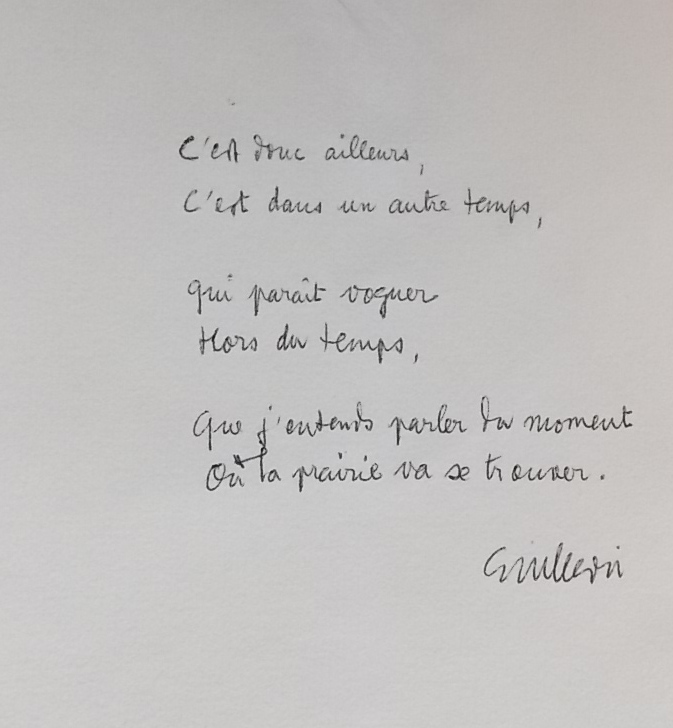 C'est donc ailleurs,
C'est dans un autre temps,
Qui paraît voguer
Hors du temps,
Que j'entends parler du moment
Où la prairie va se trouver.
Guillevic